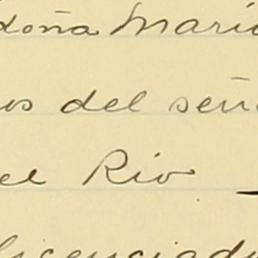 doña María
os del seño
el Rio —
licenciado